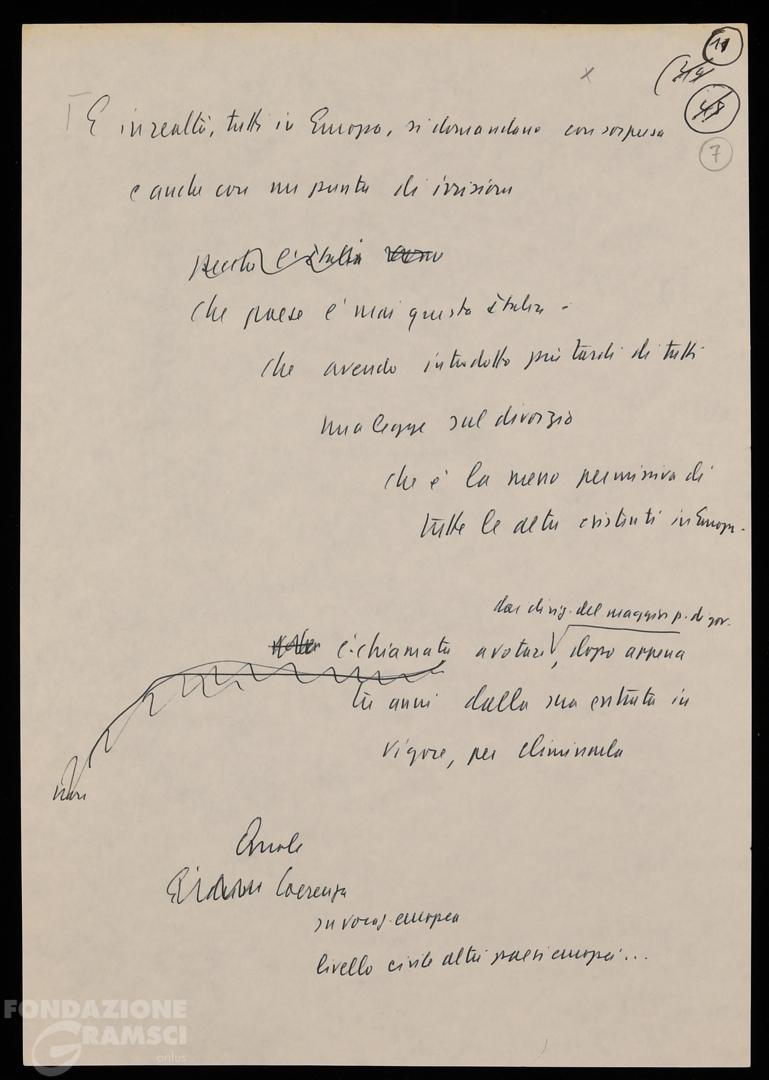 11
7
E in realtà, tutti in Europa, si domandano con sorpresa
e anche con un punta di irrisione
che paese è mai questa Italia -
che avendo introdotto più tardi di tutti
una legge sul divorzio
che è la meno permissiva di
tutte le altre esistenti in Europa -
dai dirig. del maggior p. di gov.
è chiamata a votare, dopo appena
tre anni dalla sua entrata in
vigore, per eliminarla
Quale
coerenza
su vocaz. europea
livello civile altri paesi europei...
FONDAZIONE
GRAMSCI
onlus